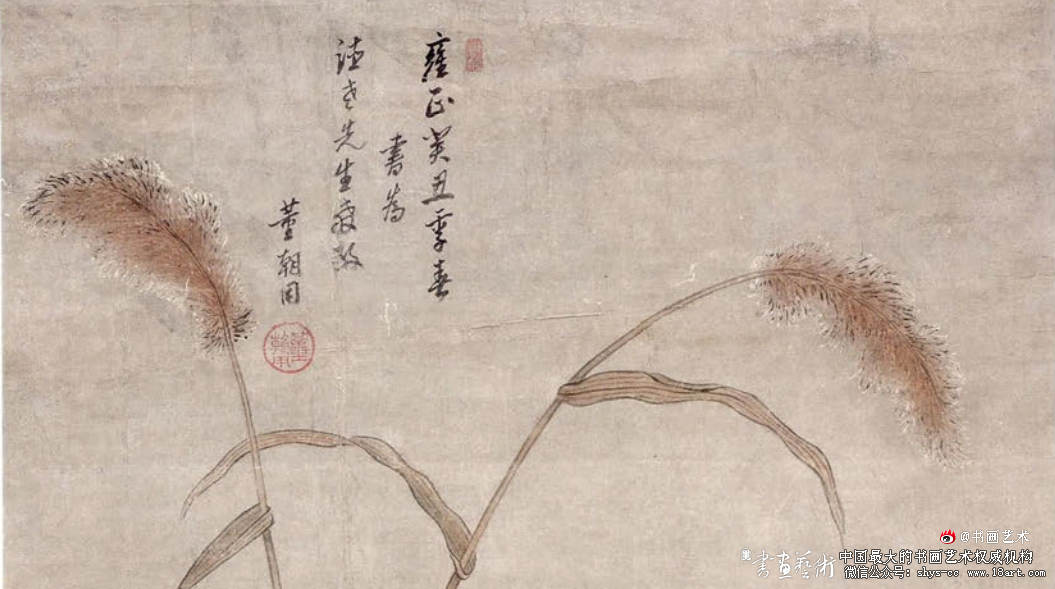 雍正癸丑季春
書為
老先生
董朝用
@书画艺术
書畫藝術
中国最大的书画艺术权威机构
微信公众号：shys-cc www.18art.com